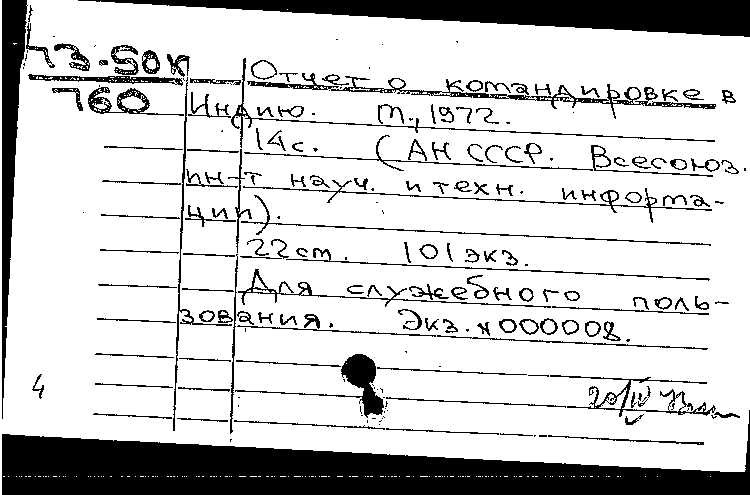 73-50к Отчет о командировке в
760 Индию. М., 1972.
14с. (АН СССР. Всесоюз.
ин-т науч. и техн. информа-
ции).
22см. 101 экз.
Для служебного поль-
зования. Экз. № 000008.
4 20/IV